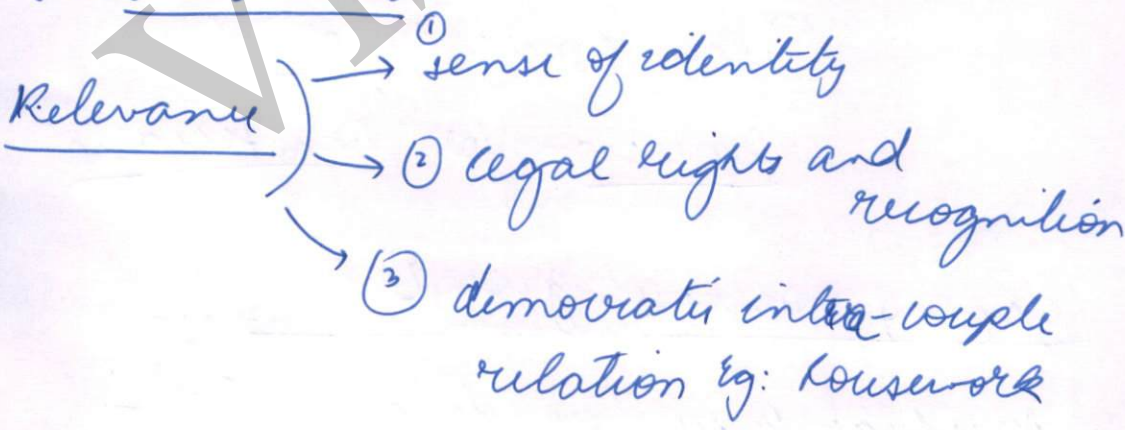 ① sense of identity
Relevance
② legal rights and
recognition
③ democratic intra-couple
relation eg: housework